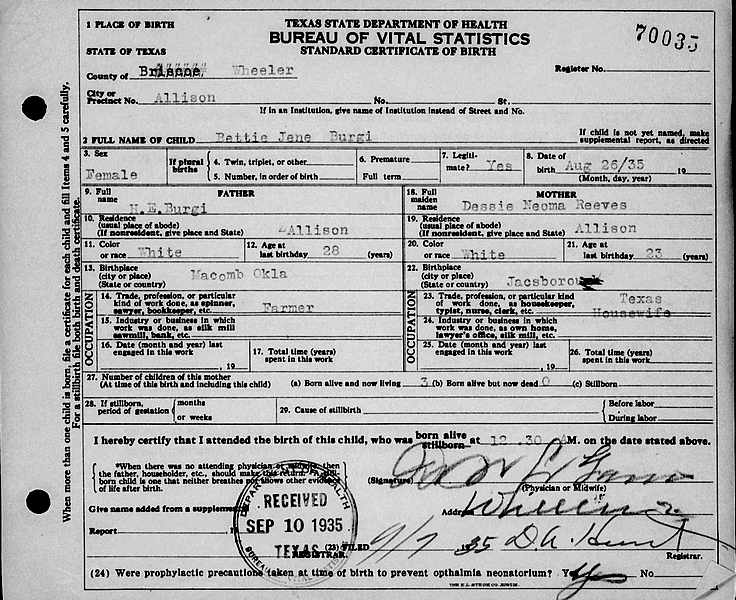 1 PLACE OF BIRTH
TEXAS STATE DEPARTMENT OF HEALTH
BUREAU OF VITAL STATISTICS
STANDARD CERTIFICATE OF BIRTH
70035
STATE OF TEXAS
County of Briscoe, Wheeler
Register No.
City or Precinct No. Allison No. St.
If in an Institution, give name of Institution instead of Street and No.
2 FULL NAME OF CHILD Bettie Jane Burgi
If child is not yet named, make supplemental report, as directed
3. Sex Female
If plural births
4. Twin, triplet, or other
5. Number, in order of birth
6. Premature
Full term
7. Legitimate? Yes
8. Date of birth Aug 26/35 19
(Month, day, year)
9. Full name FATHER
H.E.Burgi
18. Full maiden name MOTHER
Dessie Neoma Reeves
10. Residence (usual place of abode) (If nonresident, give place and State) Allison
19. Residence (usual place of abode) (If nonresident, give place and State) Allison
11. Color or race White
12. Age at last birthday 28 (years)
20. Color or race White
21. Age at last birthday 23 (years)
13. Birthplace (city or place) (State or country) Macomb Okla
22. Birthplace (city or place) (State or country) Jacsborou
OCCUPATION
14. Trade, profession, or particular kind of work done, as spinner, sawyer, bookkeeper, etc. Farmer
15. Industry or business in which work was done, as silk mill sawmill, bank, etc.
16. Date (month and year) last engaged in this work , 19
17. Total time (years) spent in this work
OCCUPATION
23. Trade, profession, or particular kind of work done, as housekeeper, typist, nurse, clerk, etc. Texas
Housewife
24. Industry or business in which work was done, as own home, lawyer's office, silk mill, etc.
25. Date (month and year) last engaged in this work , 19
26. Total time (years) spent in this work
27. Number of children of this mother (At time of this birth and including this child) (a) Born alive and now living 3 (b) Born alive but now dead 0 (c) Stillborn
28. If stillborn, period of gestation months or weeks
29. Cause of stillbirth
Before labor
During labor
I hereby certify that I attended the birth of this child, who was born alive stillborn at 12 30 AM. on the date stated above.
"When there was no attending physician or midwife then the father, householder, etc., should make this return. A stillborn child is one that neither breathes nor shows other evidence of life after birth.
(Signature)
(Physician or Midwife)
Given name added from a supplemental
Address Wheeler
Report , 19
DEPARTMENT OF HEALTH
RECEIVED
SEP 10 1935
TEXAS
BUREAU OF VITAL STATISTICS
(23) FILED 9/7 1935 D A Hunt
REGISTRAR. Registrar.
(24) Were prophylactic precautions taken at time of birth to prevent opthalmia neonatorium? Yes Yes No
When more than one child is born, file a certificate for each child and fill Items 4 and 5 carefully.
For a stillbirth file both birth and death certificate.